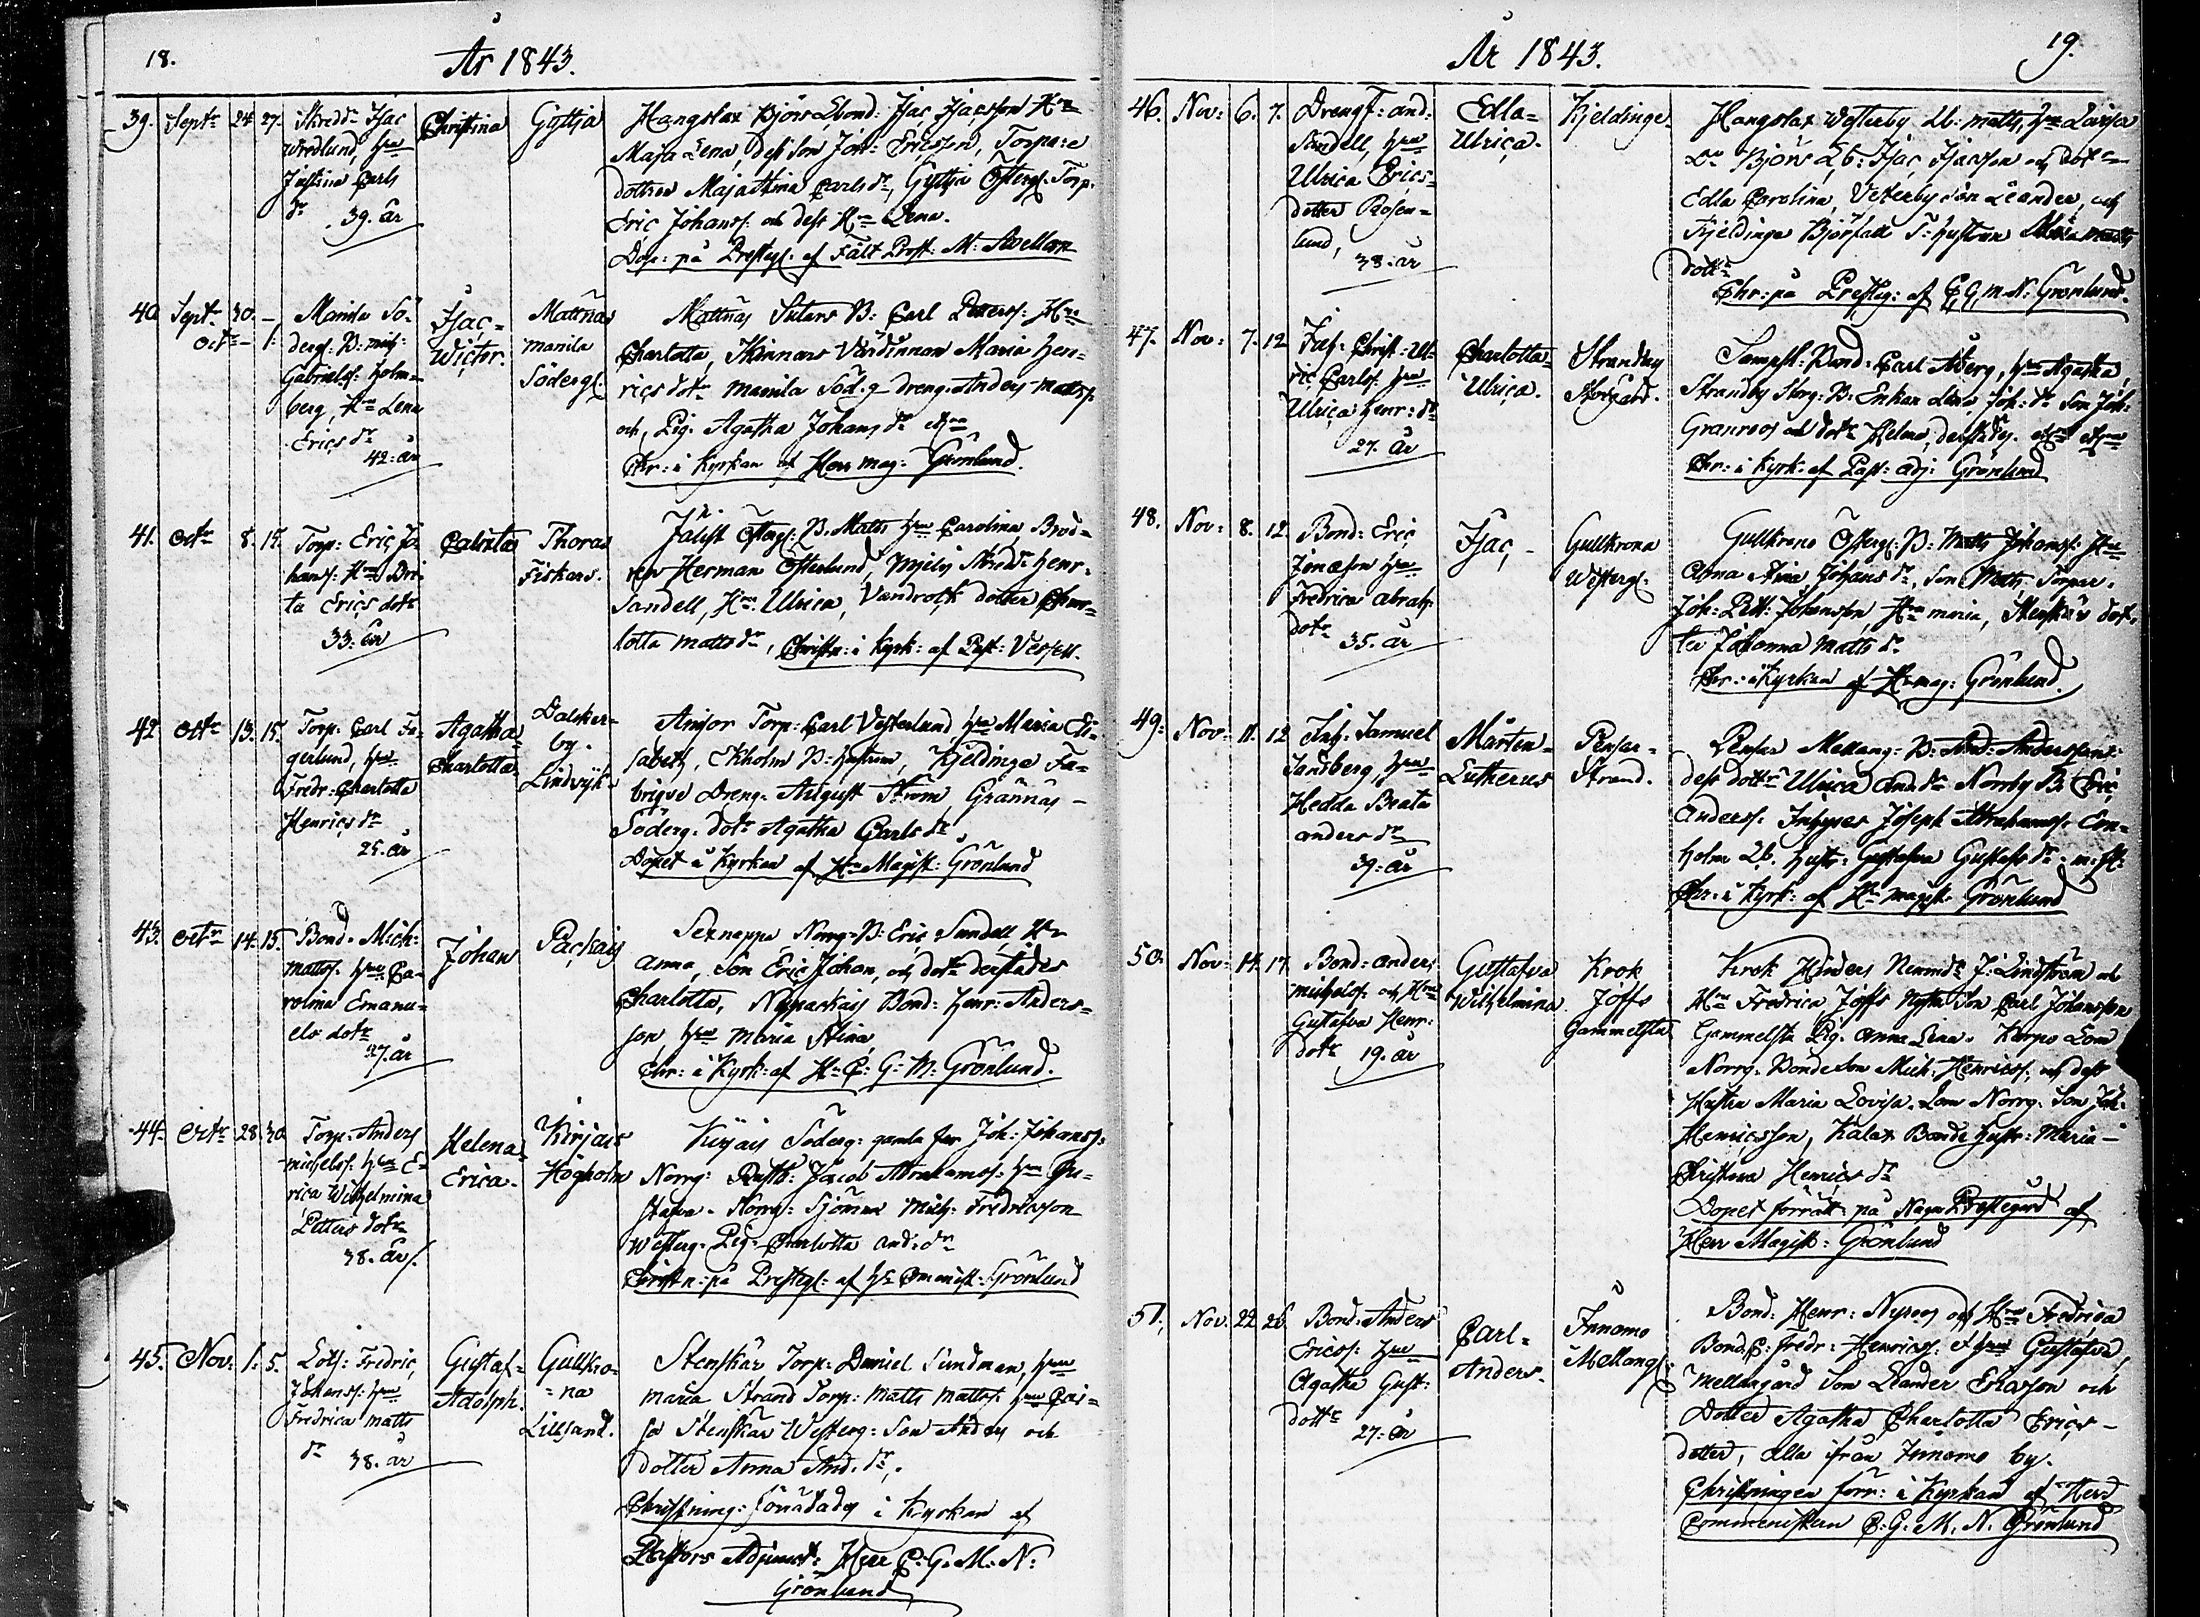 18.
År 1843.
39. Septr 24. 27. Skredd: Isac
Wredlund, Hru
Justina Carls
dr 39. år
Christina
Gyttja
Hangslax Björs Lbond: Isac Isacsson Hru
Maja Lena, dess son Joh: Ericsson, Torpare
dottren Maja Stina Carls dr, Gyttja Österg. Torp.
Eric Johanss. och dess Hru Lena.
Döpt: på Prestg. af Fält Prost: M:
40. Septr 30. –
Octr – 1.
Manila Sö-
derg: B: Mich:
Gabrielss. Holm-
berg, Hru Lena
Erics dr
42. år
Isac-
Wictor.
Mattnäs
Manila
Söderg.
Mattnäs Sutars B: Carl Petterss: Hru
Charlotta, Skinnars Värdinnan Maria Hen-
rics dotr Manila Söd.g dreng: Anders Mattss.
och Pig. Agatha Johans dr
Chr: i Kyrkan af Herr Mag: Grönlund.
41. Octr 8. 15. Torp: Eric Jo-
hanss: Hru Bri-
ta Erics dotr
33. år
Calixta
Thoras
Fiskars.
Jälist Österg: B. Matts Hru Carolina, Brod-
ren Herman Österlund, Skredd: Henr.
Sandell, Hru Ulrica, Vandrock dotter Char-
lotta Matts dr, Christn: i Kyrk: af Past:
42. Octr 13. 15. Torp: Carl Fa-
gerlund, Hru
Fredr: Charlotta
Henrics dr
25. år
Agatha-
Charlotta
Dalsker-
by.
Lindvik
Anjor Torp: Carl Vesterlund Hru Maria Eli-
sabeth, Ekholm B: hustrun, Kjeldinge Fa-
briqve Dreng: August Ström Grännäs –
Söderg. dotr Agatha Carls dr
Döpet i Kyrkan af Hr Magist: Grönlund
43. Octr 14. 15. Bond. Mich:
Mattss. Hru Ca-
rolina Emanu-
els dotr
27. år
Johan
Packais
Norrg: B: Eric Sundell Hru
Anna, Son Eric Johan, och dotr derstädes
Charlotta, Bond: Henr: Anders-
son, Hru Maria Stina,
Chr: i Kyrk: af Hr C: G: M: Grönlund.
44. Octr 28. 30. Torp: Anders
Michelss. Hru E-
rica Wilhelmina
Petters dotr
38. år.
Helena-
Erica.
Kirjais
Högholm
Kirjais Söderg: gamla far Joh: Johanss:
Norrg: Rusth: Jacob Abrahamss: Hru Gu-
stafva. Norrg: Sjöman Mich: Fredricsson
Westerg. Pig: Charlotta And: dr
Christn: på Prestg: af Hr Grönlund
45. Nov: 1. 5. Lots: Fredric
Johanss: Hru
Fredrica Matts
dr 38. år
Gustaf-
Adolph.
Gullkro-
-na
Lillsand.
Stenskär Torp: Daniel Sundman, Hru
Maria Strand Torp: Matts Mattss: Hru Cai-
sa Stenskär Westerg: Son Anders och
dotter Anna And. dr,
Christning: förrättades i Kyrkan af
Pastors Adjunct: Herr C: G: M: N:
Grönlund
År 1843.
19.
46. Nov: 6. 7. Drengf: And:
Sandell, Hru
Ulrica Erics-
dotter Rosen-
lund,
38. år
Edla-
Ulrica.
Kjeldinge
Hangslax Westerby Lb: Matts, Hru Lovisa
Do Björs Lb: Isac Isacsson och dotr
Edla Carolina, Vesterby son Leander, och
Kjeldinge Björfall T: hustrun
dottr
Chr: på Prestg: af C, G, M. N: Grönlund.
47. Nov: 7. 12. Inh: Christ: Ul-
ric Carlss. Hru
Ulrica Henr: dr
27. år
Charlotta-
Ulrica.
Strandby
Storgård.
Bond: Carl Åberg, Hru Agatha
Strandby Storg: B: Enkan Lena Joh: dr Son Joh:
Granroos och dotr Helena, derstädes
Chr: i Kyrk: af Past: adj: Grönlund
48. Nov: 8. 12. Bond: Eric
Jonasson Hru
Fredrica Abrah:
dotr
35. år
Isac –
Gullkrona
Westerg:
Gullkrona Österg: B: Matts Johanss: Hru
Anna Stina Johans dr, Son Matts Torpar.
Joh: Pett: Johansson, Hru Maria, Stenskär dot-
ter Johanna Matts dr
Chr: i Kyrkan af Hr Mag: Grönlund.
49. Nov: 11. 12. Inh: Samuel
Sandberg, Hru
Hedda Beata
Anders dr
39. år
Mårten-
Lutherus
Pensar-
Strand.
Pensar Mellang: B: And: Anderssons
dess dottr Ulrica And. dr Norrby B: Eric
Anderss. Inhyses Joseph Abrahamss.
holm Lb. hustr: Gustafva Gustafs dr
Chr. i Kyrk: af Hr Magist: Grönlund
50. Nov: 14. 17. Bond: Anders
Michelss: och Hru
Gustafva Henr:
dotr 19. år
Gustafva
Wilhelmina
Krok
Jöffs
Gammelsta
Krok Hinders Nemnd: J: Lindström och
Hru Fredrica, Jöffs Son Carl Johansson
Gammelsta Pig. Anna Lena. Korpo Lom
Norrg: Bonde Son Mich: Henricss: och dess
Hustru Maria Lovisa. Lom Norrg: Son Joh:
Henricsson, Kalax Bonde hustr: Maria –
Christina Henrics dr
Döpet förrätt: på Nagu Prestegård af
Herr Magist: Grönlund
51. Nov. 22. 26. Bond: Anders
Ericss: Hru
Agatha Gust:
dottr
27: år
Carl-
Anders.
Innamo
Mellang:
Bond: Henr: Nyroos och Hru Fredrica
Bond. C: Fredr: Henricss: Hru Gustafva
Mellangård Son Leander Ericsson och
Dotter Agatha Charlotta Erics-
dotter, alla ifrån Innamo by.
Christningen förr: i Kyrkan af Herr
C: G. M. N. Grönlund